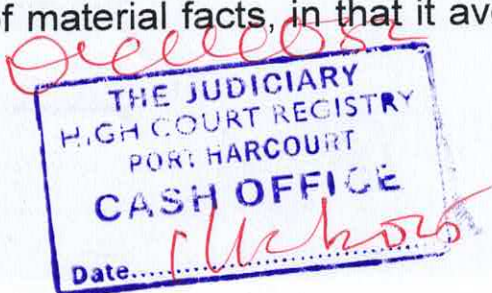 of material facts, in that it av
THE JUDICIARY
HIGH COURT REGISTRY
PORT HARCOURT
CASH OFFICE
Date....................